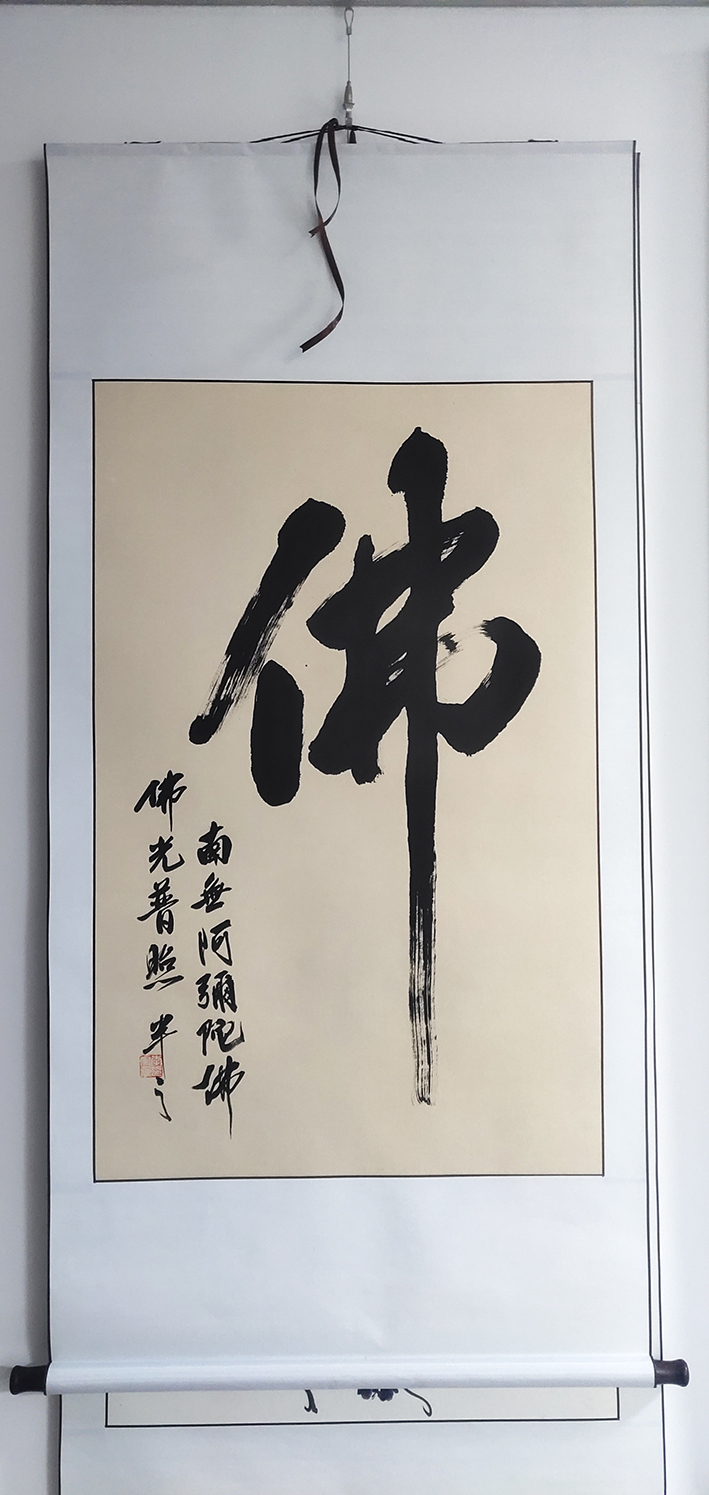 佛
南無阿彌陀佛
佛光普照